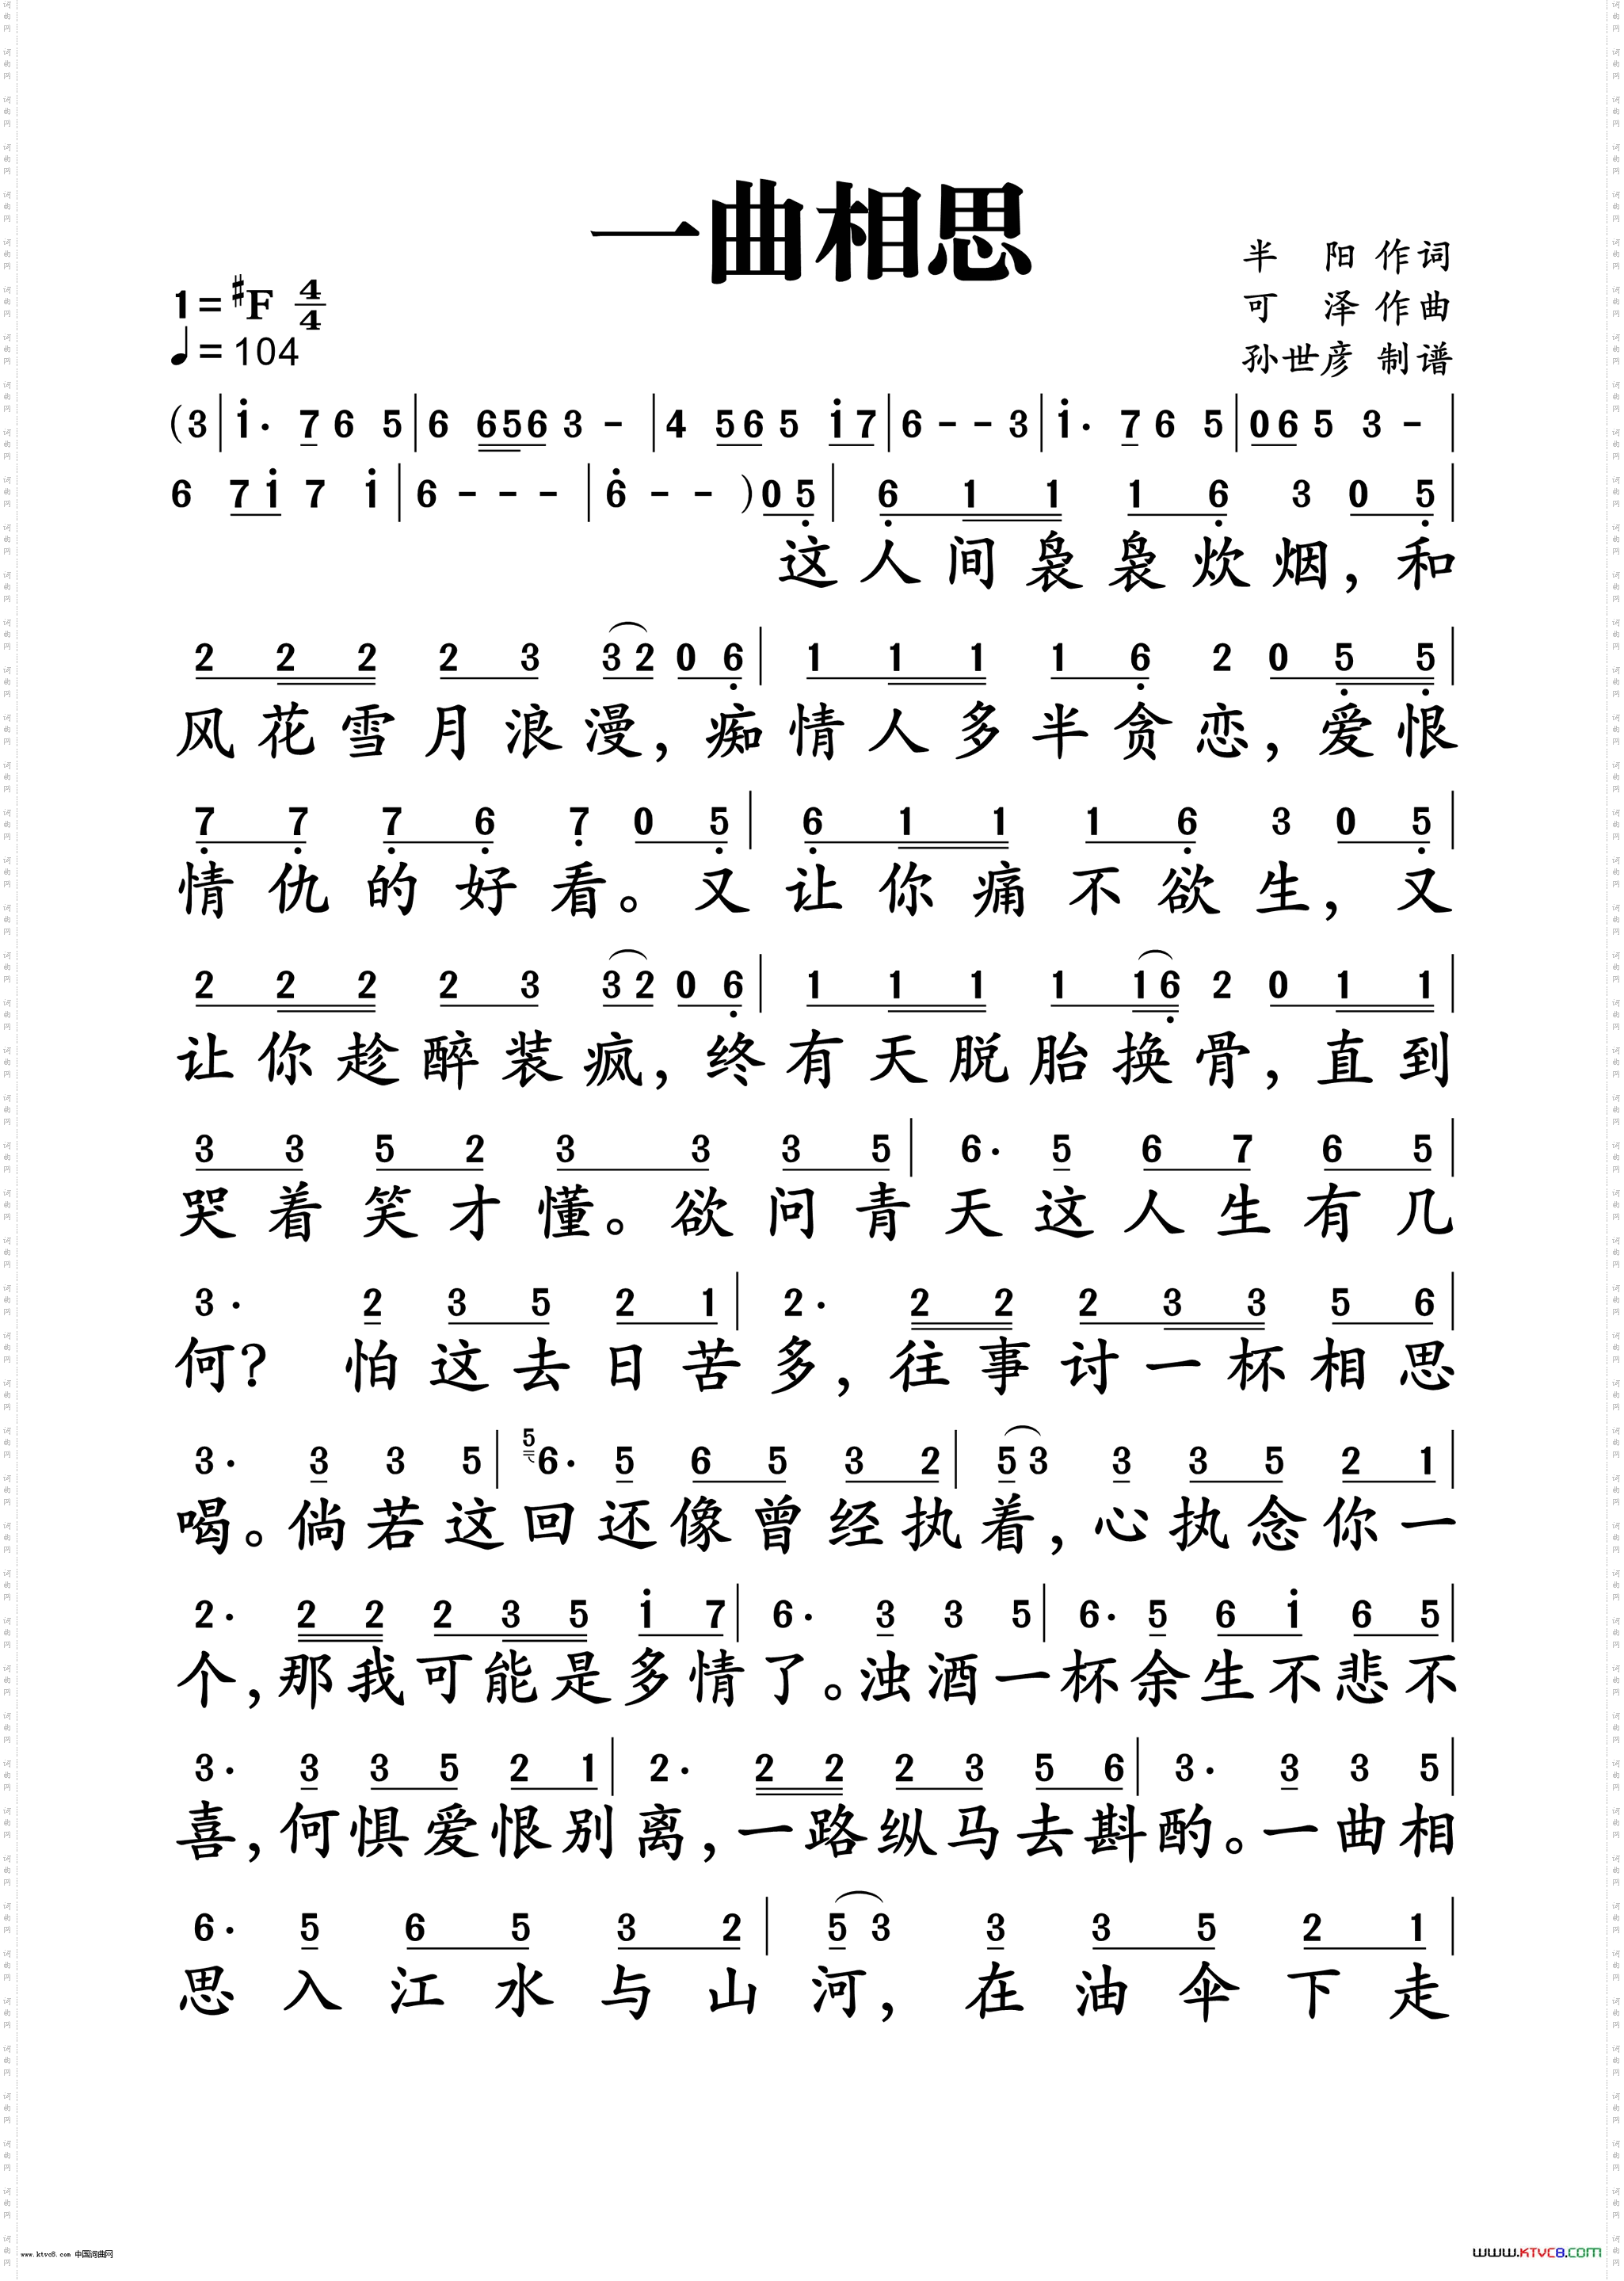 一曲相思
半 阳 作词
1=♯F 4/4
可 泽 作曲
♩=104
孙世彦 制谱
(3 | i· 7 6 5 | 6 656 3 - | 4 56 5 i7 | 6 - - 3 | i· 7 6 5 | 06 5 3 - |
6 7i 7 i | 6 - - - | 6 - - ) 0 5 | 6 1 1 1 6 3 0 5 |
这人间袅袅炊烟，和
2 2 2 2 3 3 2 0 6 | 1 1 1 1 6 2 0 5 5 |
风花雪月浪漫，痴情人多半贪恋，爱恨
7 7 7 6 7 0 5 | 6 1 1 1 6 3 0 5 |
情仇的好看。又让你痛不欲生，又
2 2 2 2 3 3 2 0 6 | 1 1 1 1 1 6 2 0 1 1 |
让你趁醉装疯，终有天脱胎换骨，直到
3 3 5 2 3 3 3 5 | 6· 5 6 7 6 5 |
哭着笑才懂。欲问青天这人生有几
3· 2 3 5 2 1 | 2· 2 2 2 3 3 5 6 |
何？ 怕这去日苦多，往事讨一杯相思
3· 3 3 5 | 5 6· 5 6 5 3 2 | 5 3 3 3 5 2 1
喝。倘若这回还像曾经执着，心执念你一
2· 2 2 2 3 5 i 7 | 6· 3 3 5 | 6· 5 6 i 6 5 |
个，那我可能是多情了。浊酒一杯余生不悲不
3· 3 3 5 2 1 | 2· 2 2 2 3 5 6 | 3· 3 3 5 |
喜，何惧爱恨别离，一路纵马去斟酌。一曲相
6· 5 6 5 3 2 | 5 3 3 3 5 2 1 |
思入江水与山河，在油伞下走
www.ktvc8.com 中国词曲网
WWW.KTVC8.COM